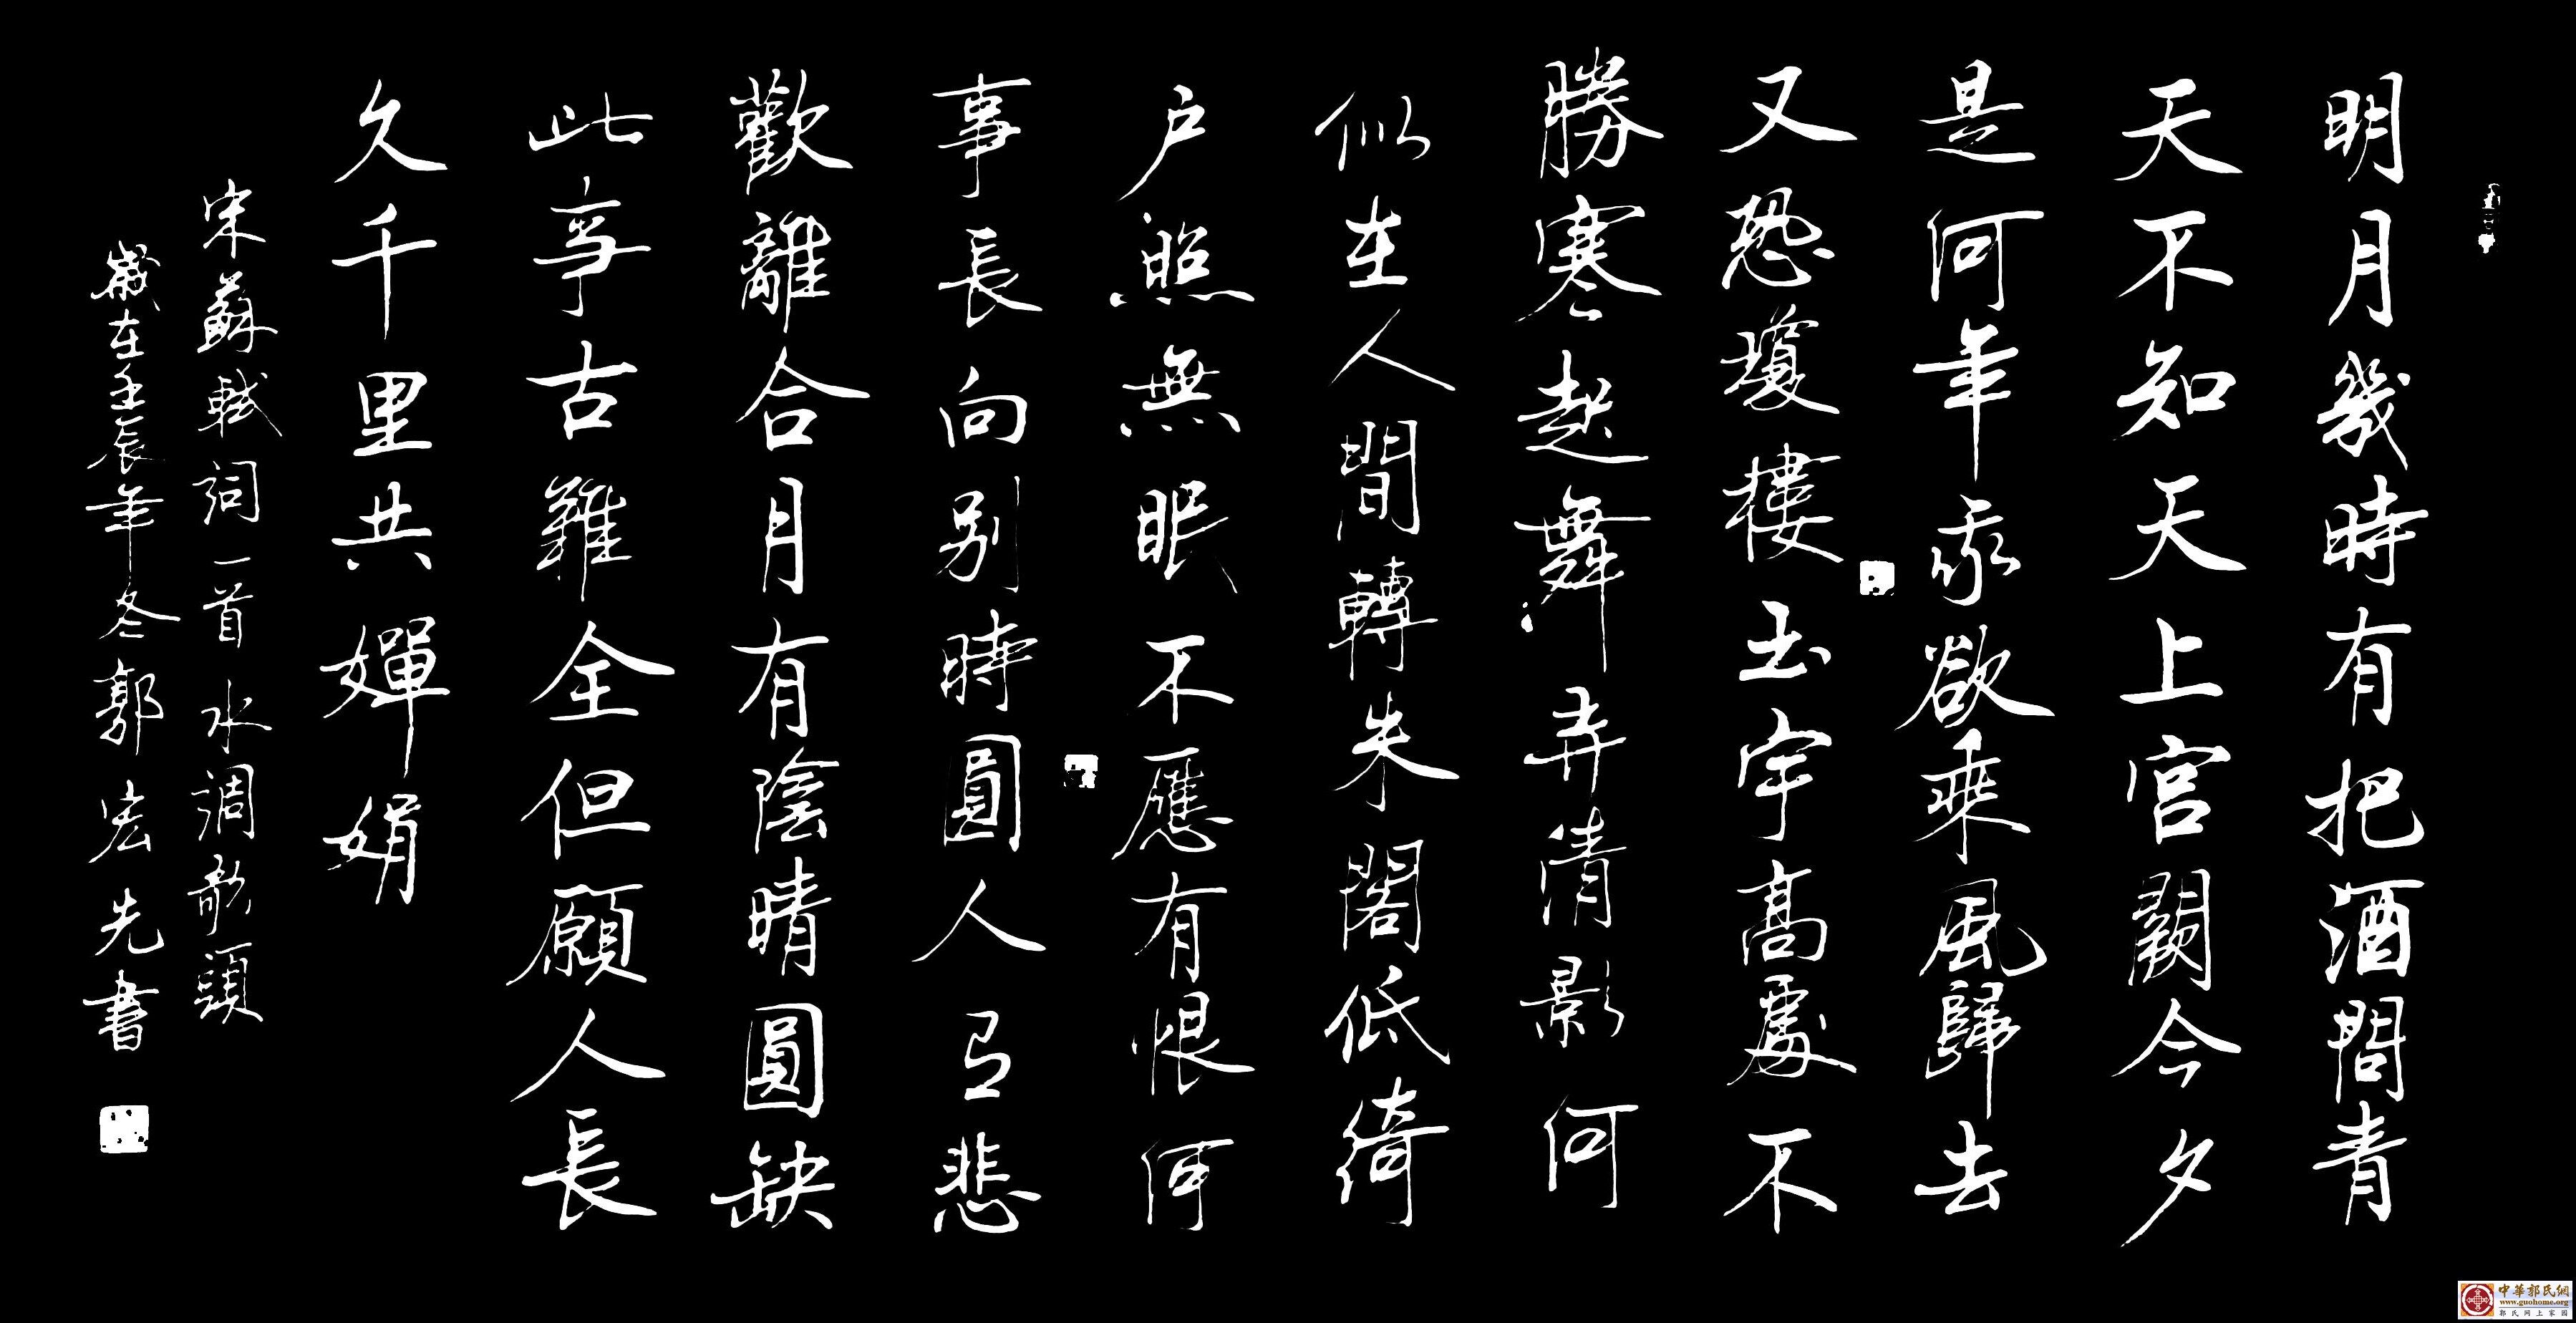 明月幾時有把酒問青
天不知天上宫闕今夕
是何年我欲乘風歸去
又恐瓊樓玉宇高處不
勝寒起舞弄清影何
似在人間轉朱閣低綺
户照無眠不應有恨何
事長向别時圓人有悲
歡離合月有陰晴圓缺
此事古難全但願人長
久千里共嬋娟
宋蘇軾詞一首水調歌頭
歲在壬辰年冬郭宏先書
中華郭氏網
www.guohome.org
郭氏网上家园